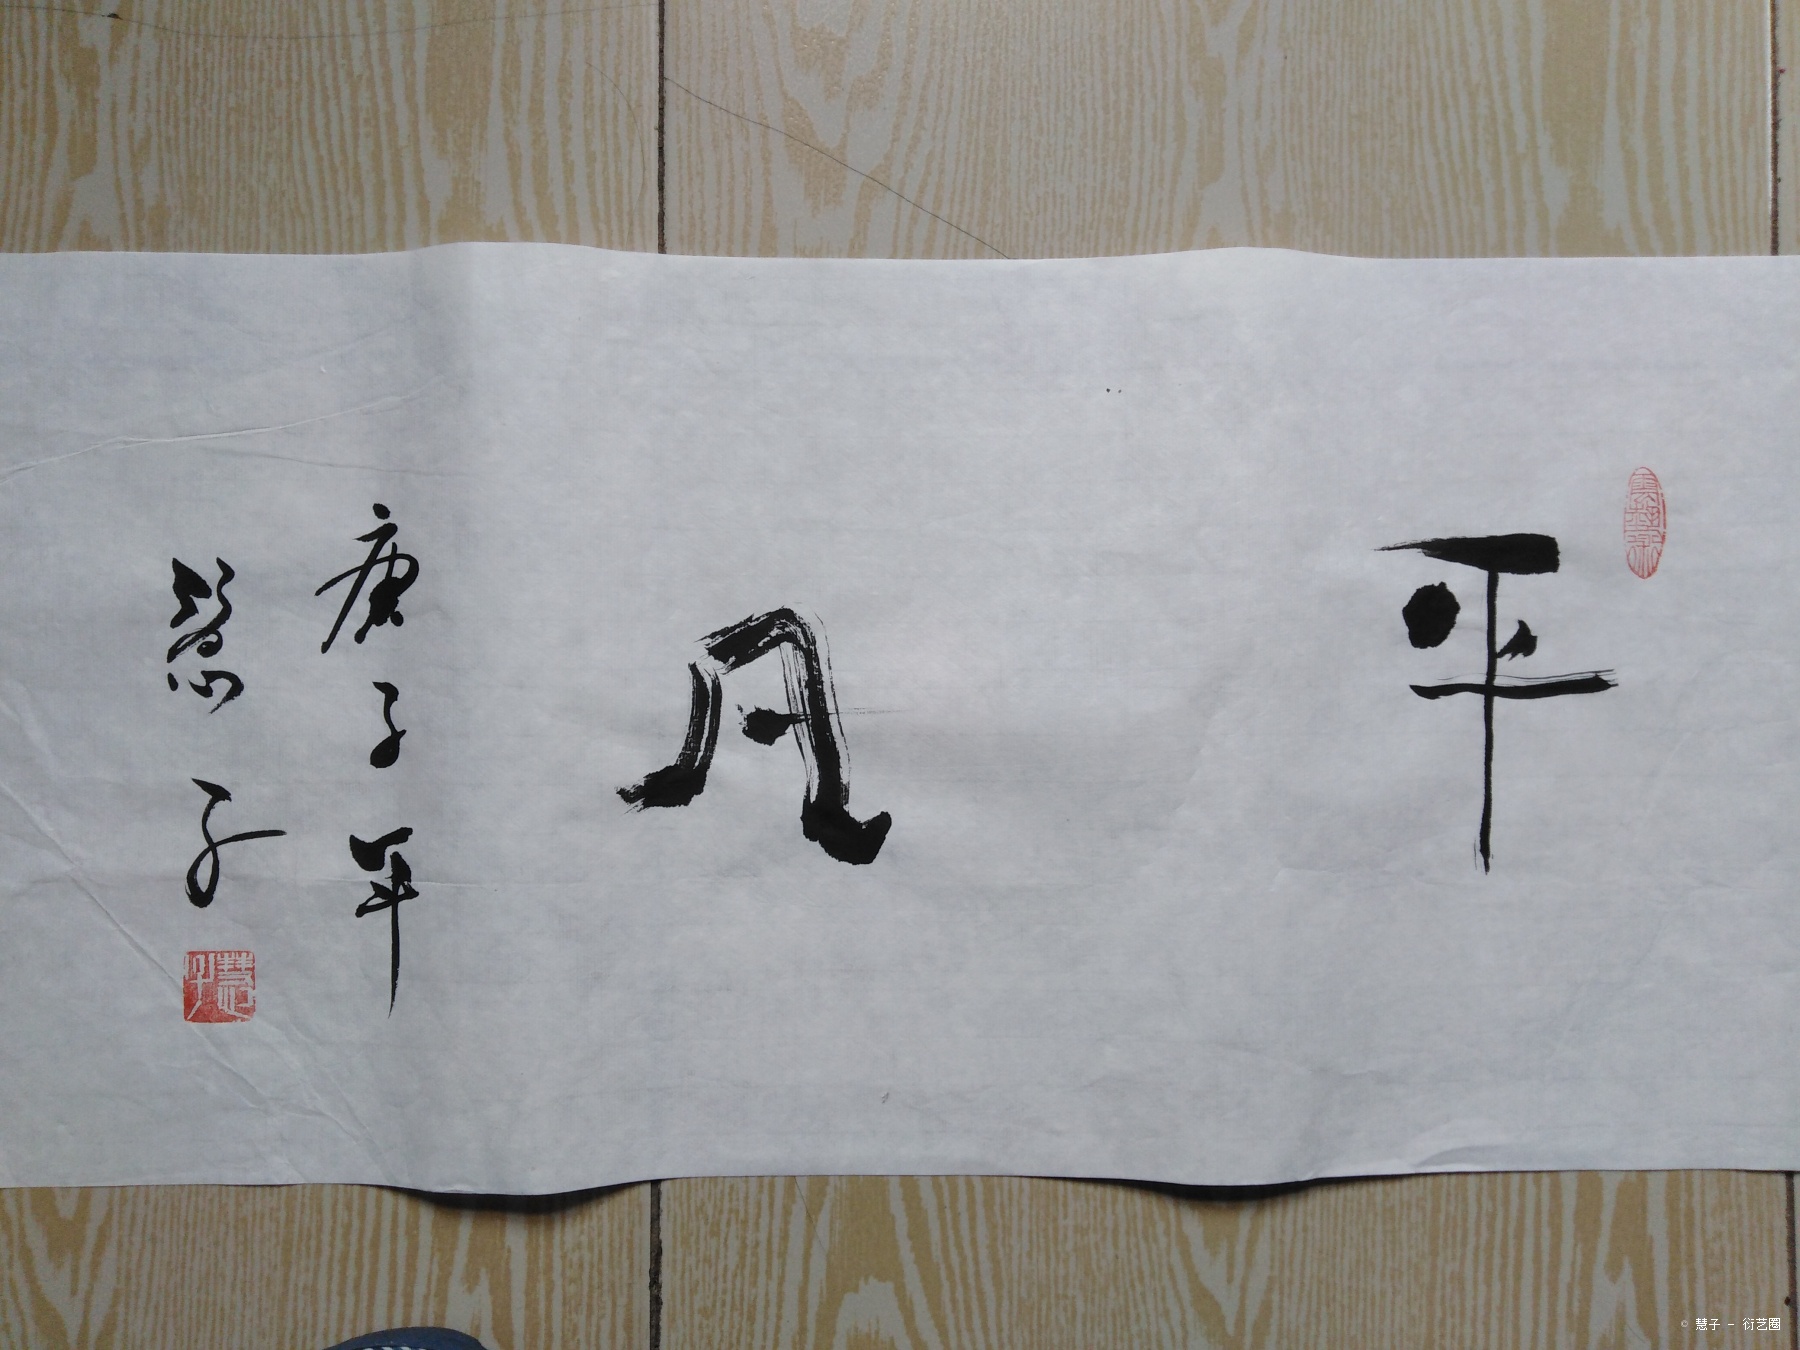 平凡
庚子年
慧子
慧子
© 慧子 - 衍艺圈